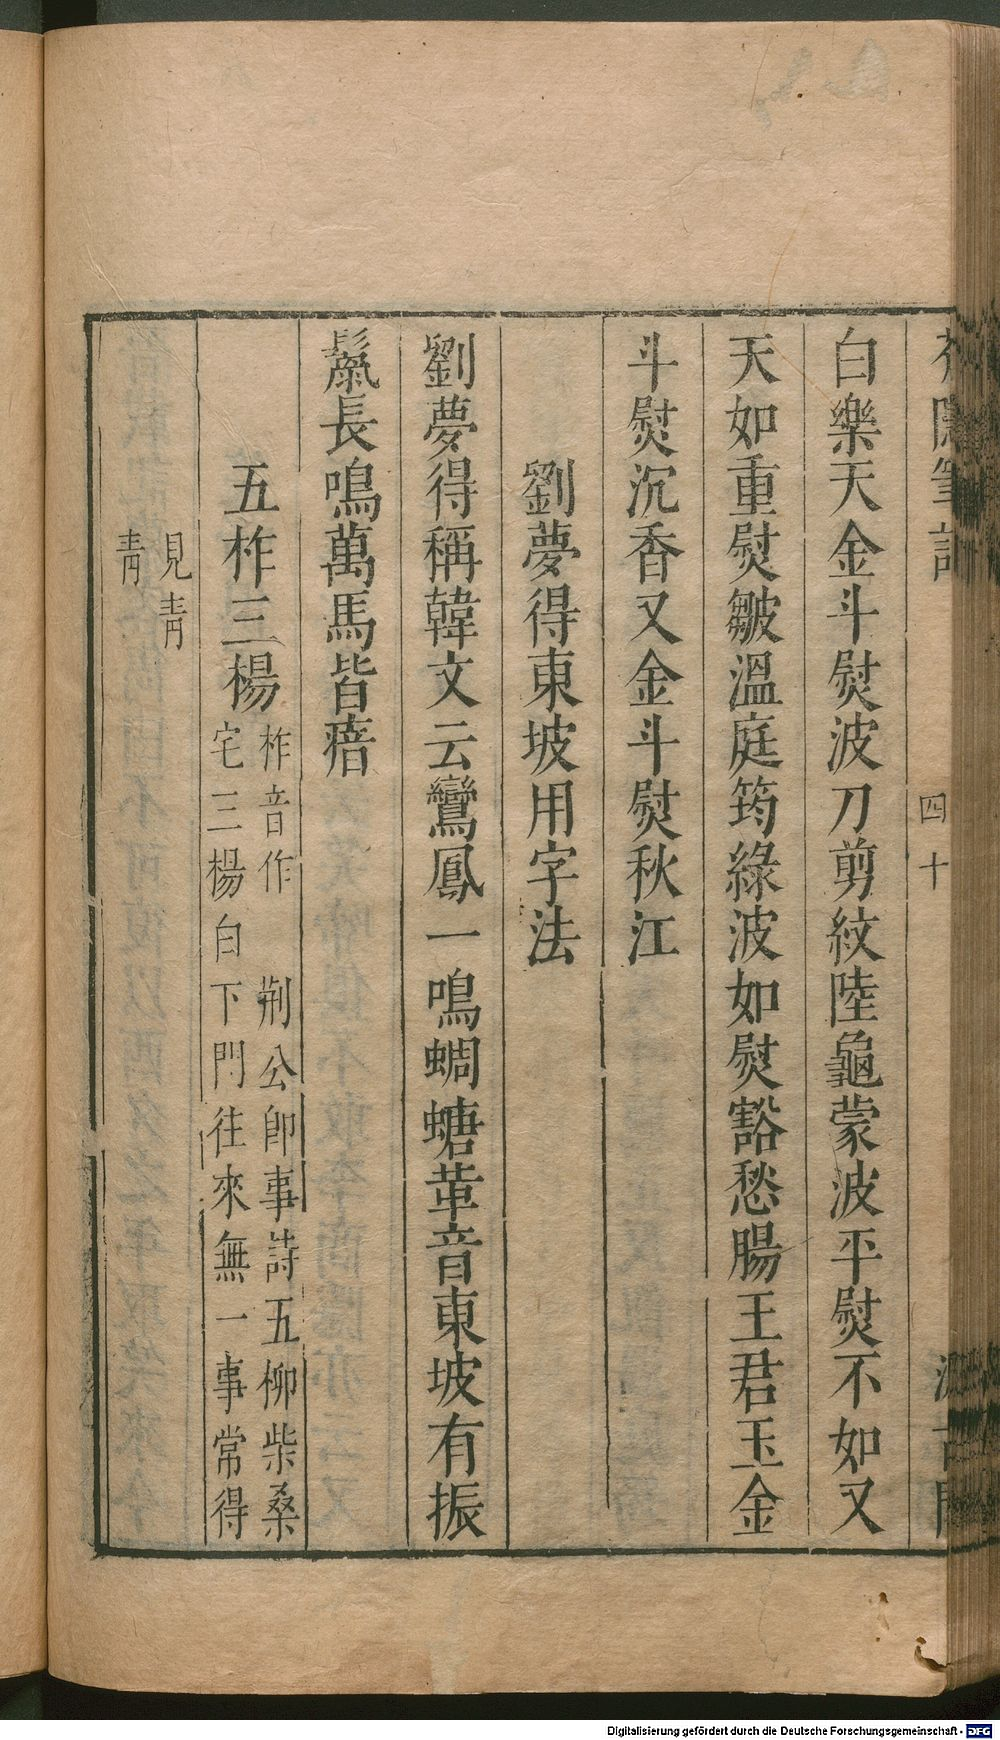 芥隱筆記 四十 汲古閣
白樂天金斗熨波刀剪紋陸龜蒙波平熨不如又
天如重熨皺溫庭筠綠波如熨豁愁腸王君玉金
斗熨沉香又金斗熨秋江
劉夢得東坡用字法
劉夢得稱韓文云鸞鳳一鳴蜩螗革音東坡有振
鬣長鳴萬馬皆瘖
五柞三楊
柞音作 荆公卽事詩五柳柴桑
宅三楊白下門往來無一事常得
見靑
靑
Digitalisierung gefördert durch die Deutsche Forschungsgemeinschaft - DFG